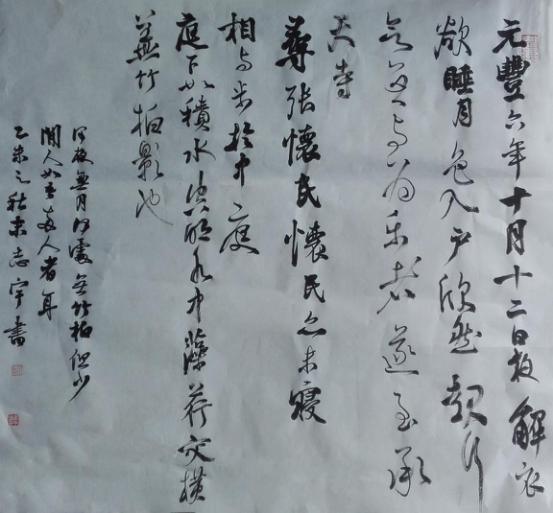 元豐六年十月十二日夜解衣
欲睡月色入户欣然起行
念無与為乐者遂至承
天寺
尋張懷民懷民亦未寢
相与步於中庭
庭下如積水空明水中藻荇交橫
蓋竹柏影也
何夜無月何處無竹柏但少
閒人如吾兩人者耳
乙未之秋志書